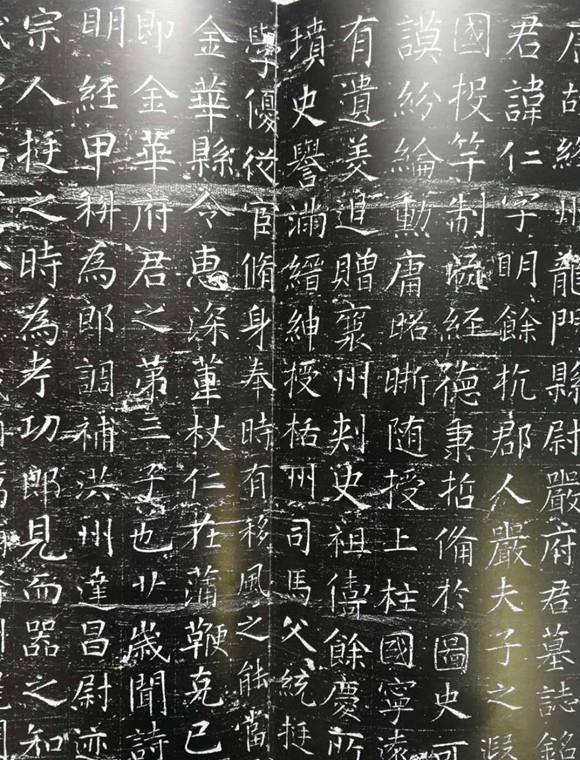 故絳州龍門縣尉嚴府君墓誌銘
君諱仁字明餘杭郡人嚴夫子之遐
國投竿制流經德秉哲備於圖史可
謨紛綸勳庸昭晰随授上柱國寧遠
有遺美追贈襄州刾史祖儔餘慶所
墳史譽滿縉紳授栝州司馬父統挺
學優從宦脩身奉時有移風之能當
金華縣令惠深董杖仁在蒲鞭克己
即金華府君之第三子也丱歲聞詩
明經甲科為郎調補洪州達昌尉迹
宗人挺之時為考功郎見而器之知